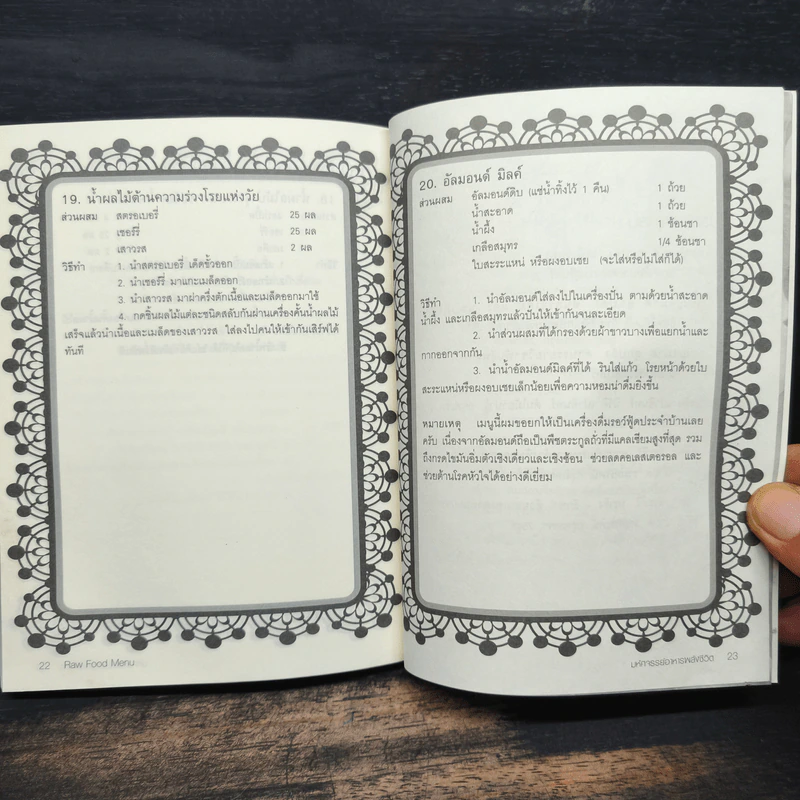 19. น้ำผลไม้ต้านความร่วงโรยแห่งวัย
ส่วนผสม สตรอเบอรี่ 25 ผล
เชอร์รี่ 25 ผล
เสาวรส 2 ผล
วิธีทำ 1. นำสตรอเบอรี่ เด็ดขั้วออก
2. นำเชอร์รี่ มาแกะเมล็ดออก
3. นำเสาวรส มาผ่าครึ่งตักเนื้อและเมล็ดออกมาใช้
4. กดชิ้นผลไม้แต่ละชนิดสลับกันผ่านเครื่องคั้นน้ำผลไม้
เสร็จแล้วนำเนื้อและเมล็ดของเสาวรส ใส่ลงไปคนให้เข้ากันเสิร์ฟได้
ทันที
22 Raw Food Menu
20. อัลมอนด์ มิลค์
ส่วนผสม อัลมอนด์ดิบ (แช่น้ำทิ้งไว้ 1 คืน) 1 ถ้วย
น้ำสะอาด 1 ถ้วย
น้ำผึ้ง 1 ช้อนชา
เกลือสมุทร 1/4 ช้อนชา
ใบสะระแหน่ หรือผงอบเชย (จะใส่หรือไม่ใส่ก็ได้)
วิธีทำ 1. นำอัลมอนด์ใส่ลงไปในเครื่องปั่น ตามด้วยน้ำสะอาด
น้ำผึ้ง และเกลือสมุทรแล้วปั่นให้เข้ากันจนละเอียด
2. นำส่วนผสมที่ได้กรองด้วยผ้าขาวบางเพื่อแยกน้ำและ
กากออกจากกัน
3. นำน้ำอัลมอนด์มิลค์ที่ได้ รินใส่แก้ว โรยหน้าด้วยใบ
สะระแหน่หรือผงอบเชยเล็กน้อยเพื่อความหอมน่าดื่มยิ่งขึ้น
หมายเหตุ เมนูนี้ผมขอยกให้เป็นเครื่องดื่มรอว์ฟู้ดประจำบ้านเลย
ครับ เนื่องจากอัลมอนด์ถือเป็นพืชตระกูลถั่วที่มีแคลเซียมสูงที่สุด รวม
ถึงกรดไขมันอิ่มตัวเชิงเดี่ยวและเชิงซ้อน ช่วยลดคอเลสเตอรอล และ
ช่วยต้านโรคหัวใจได้อย่างดีเยี่ยม
มหัศจรรย์อาหารพลังชีวิต 23